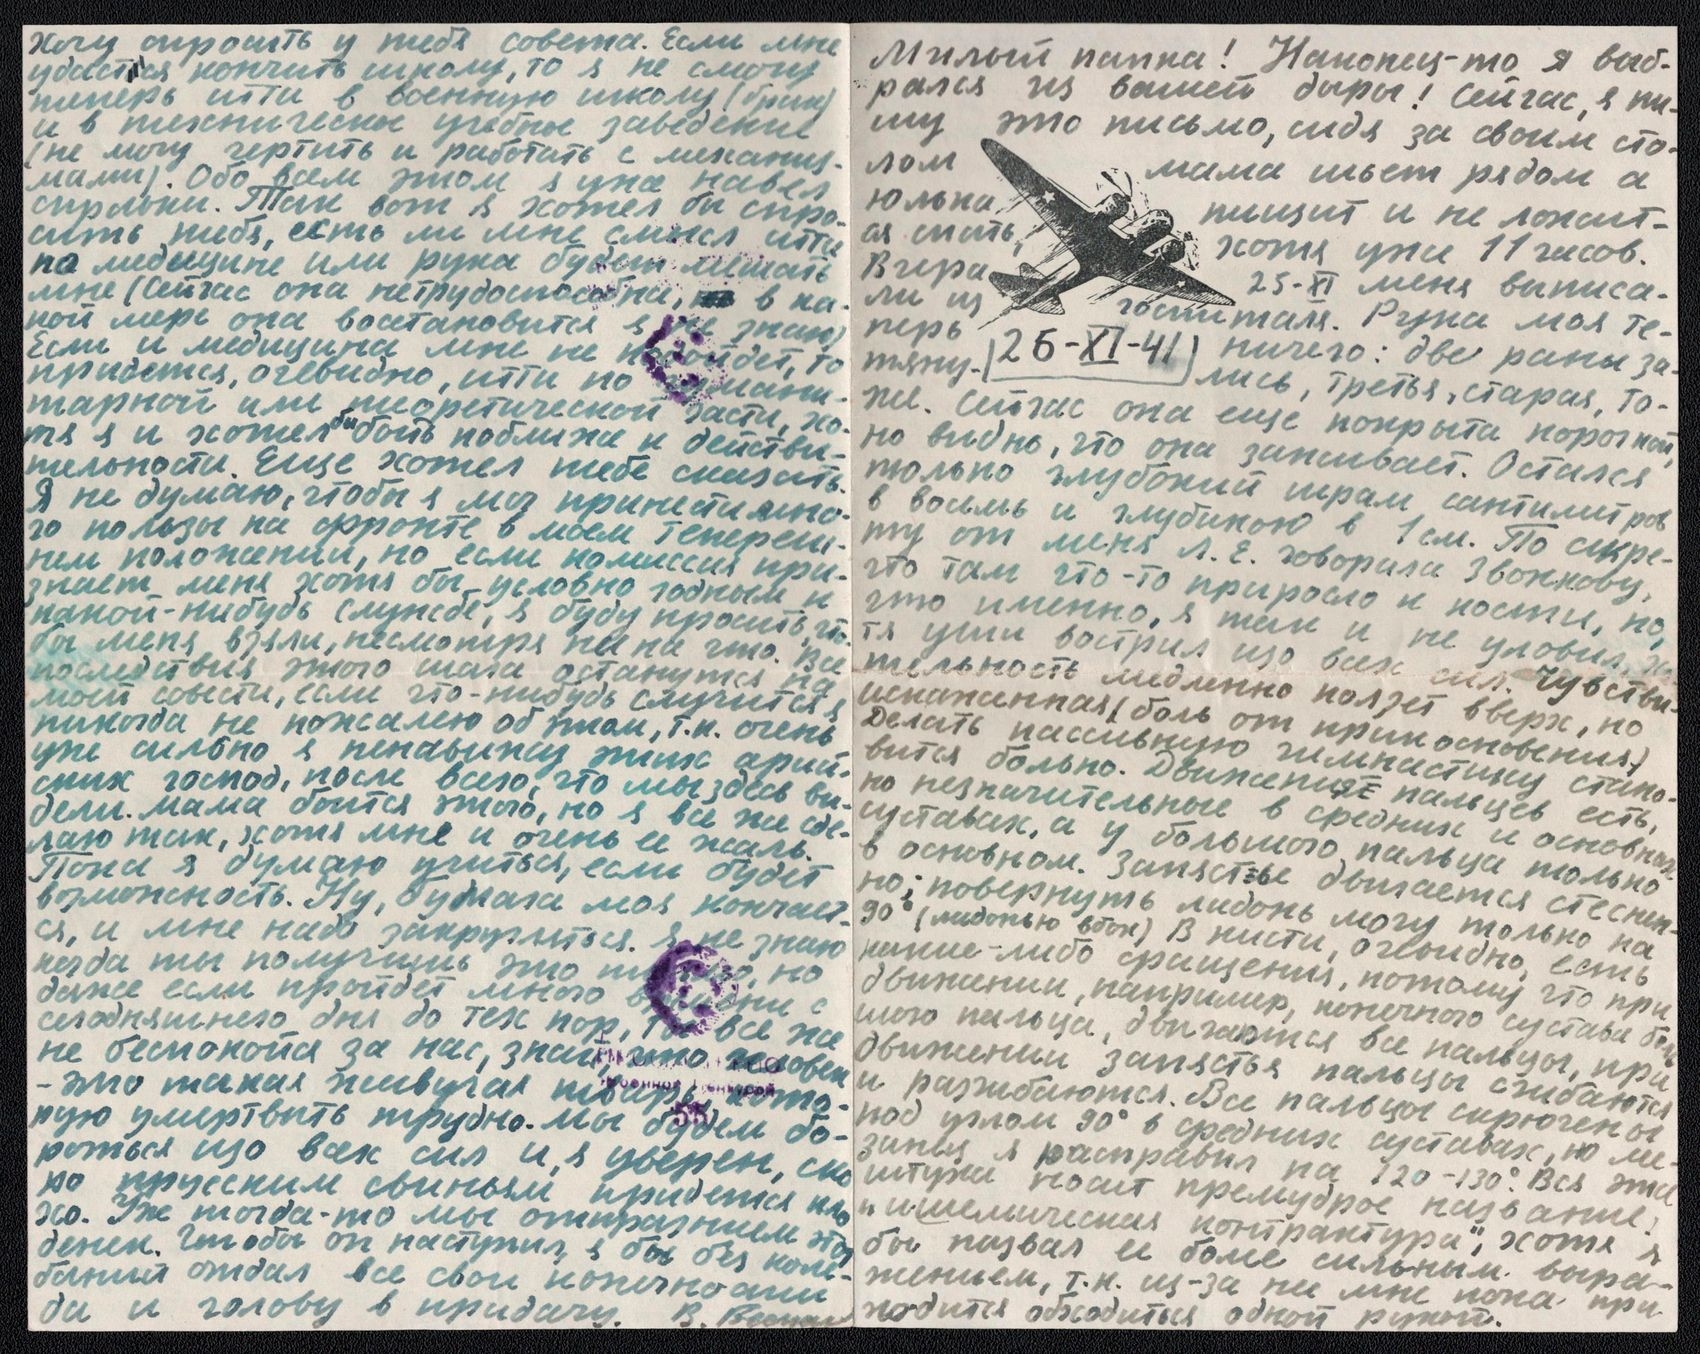 Милый папка! Наконец-то я выб-
рался из вашей дыры! Сейчас, я пи-
шу это письмо, сидя за своим сто-
лом мама шьет рядом а
юлька пищит и не ложит-
ся спать, хотя уже 11 часов.
Вчера 25-XI меня выписа-
ли из госпиталя. Рука моя те-
перь ничего: две раны за-
тяну- лись, третья, старая, то-
26-XI-41
же. Сейчас она еще покрыта корочкой,
но видно, что она заживает. Остался
только глубокий шрам сантиметров
в восемь и глубиною в 1 см. По секре-
ту от меня Л. Е. говорила Звонкову,
что там что-то приросло к кости, но,
что именно, я так и не уловил, хо-
тя уши вострил изо всех сил. Чувстви-
тельность медленно ползет вверх, но
искаженная (боль от прикосновения)
Делать пассивную гимнастику стано-
вится больно. Движения пальцев есть,
но незначительные в средних и основных
суставах, а у большого пальца только
в основном. Запястье двигается стеснен-
но; повернуть ладонь могу только на
90° (ладонью вбок) В кисти, очевидно, есть
какие-либо сращения, потому что при
движении, например, конечного сустава боль-
шого пальца, двигаются все пальцы, при
движении запястья пальцы сгибаются
и разжибаются. Все пальцы скрючены
под углом 90° в средних суставах, но ми-
зинец я расправил на 120-130°. Вся эта
штука носит премудрое название:
"ишемическая контрактура", хотя я
бы назвал ее более сильным выра-
жением, т.к. из-за нее мне пока при-
ходится обходиться одной рукой.
хочу спросить у тебя совета. Если мне
удастся кончить школу, то я не смогу
теперь итти в военную школу
и в технически учебные заведение
(не могу чертить и работать с механиз-
мами). Обо всем этом я уже навел
справки. Так вот я хотел бы спро-
сить тебя, есть ли мне смысл итти
по медицине или рука будет мешать
мне (Сейчас она нетрудоспособна, в ка-
кой мере она восстановится я не знаю)
Если и медицина мне не подойдет, то
придется, очевидно, итти по гумани-
тарной или теоретической части, хо-
тя я и хотел бы быть поближе к действи-
тельности. Еще хотел тебе сказать.
Я не думаю, чтобы я мог принести мно-
го пользы на фронте в моем тепереш-
нем положении, но если комиссия при-
знает меня хотя бы условно годным к
какой-нибудь службе, я буду просить, что-
бы меня взяли, несмотря ни на что. Все
последствия этого шага останутся на
моей совести, если что-нибудь случится я
никогда не пожалею об этом, т.к. очень
уж сильно я ненавижу этих арий-
ских господ, после всего, что мы здесь ви-
дели. мама боится этого, но я все же сде-
лаю так, хотя мне и очень ее жаль.
Пока я думаю учиться, если будет
возможность. Ну, бумага моя кончает-
ся, и мне надо закругляться. Я не знаю
когда ты получишь это письмо, но
даже если пройдет много времени с
сегодняшнего дня до тех пор, ты все же
не беспокойся за нас, знай, что человек
-это такая живучая тварь, кото-
рую умертвить трудно. Мы будем бо-
роться изо всех сил и, я уверен, ско
ро прусским свиньям придется пло
хо. Уж тогда-то мы отпразднуем этот
денек. Чтобы он наступил, я бы без коле-
баний отдал все свои конечности
да и голову в придачу. В.